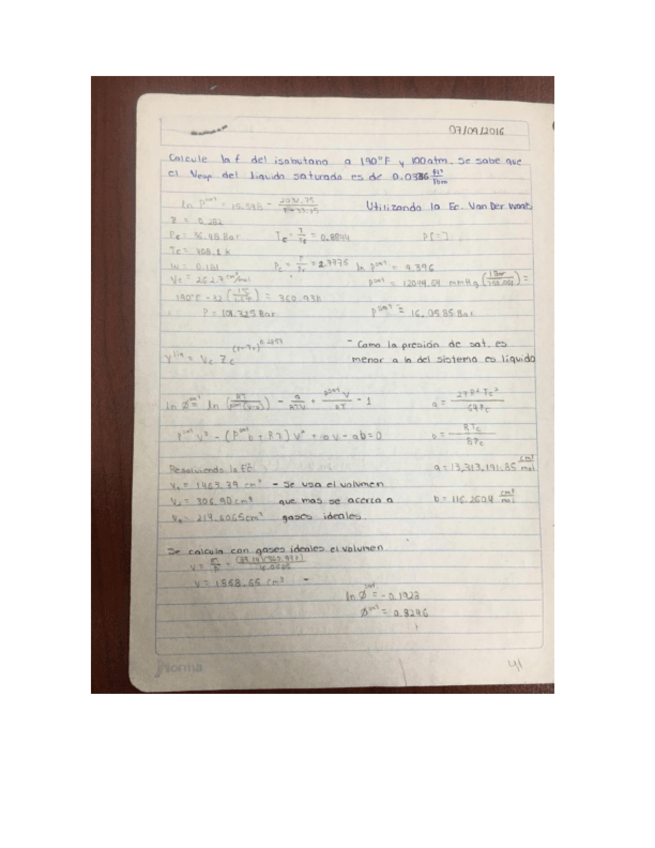 07/09/2016
Calcule la f del isobutano a 190°F y 100atm. Se sabe que
el Vesp del liquido saturado es de 0.0386 ft³/lbm
ln P^sat = Utilizando la Ec. Van Der Waals
Z = 0.282
Pc = 36.48 Bar Tr = T/Tc = 0.8844
Tc = 408.1 k
Pr = P/Pc = 2.7775 ln p^sat = 9.396
Vc = 262.7 cm³/mol p^sat = mmHg
190°F - 32 = 360.93k
P = 101.325 Bar p^sat = 16.0585 Bar
- Como la presión de sat. es
menor a la del sistema es liquido
V^liq = Vc Zc
ln Ø^sat = ln - a/RTV + P^sat V/RT - 1 a = 27R²Tc²/64Pc
P^sat V³ - (P^sat b + RT) V² + aV - ab = 0 b = RTc/8Pc
Resolviendo la Ec. a = 13,313,191.85
V₁ = 1463.39 cm³ - Se usa el volumen
V₂ = 306.90 cm³ que mas se acerca a b = 116.2604 cm³/mol
gases ideales.
Se calcula con gases ideales el volumen
V = 1868.66 cm³
ln Ø^sat = -0.1928
Ø^sat = 0.8246
Norma